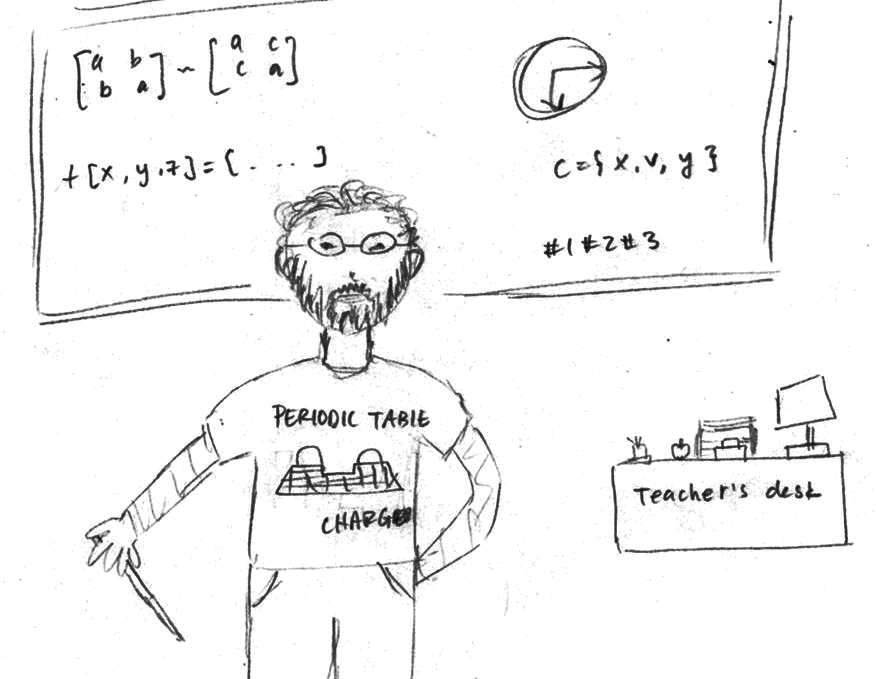 [a b
b a] ~ [a c
c a]
+[x, y, z] = { . . . ]
c={ x, v, y }
#1 #2 #3
PERIODIC TABLE
Teacher's desk